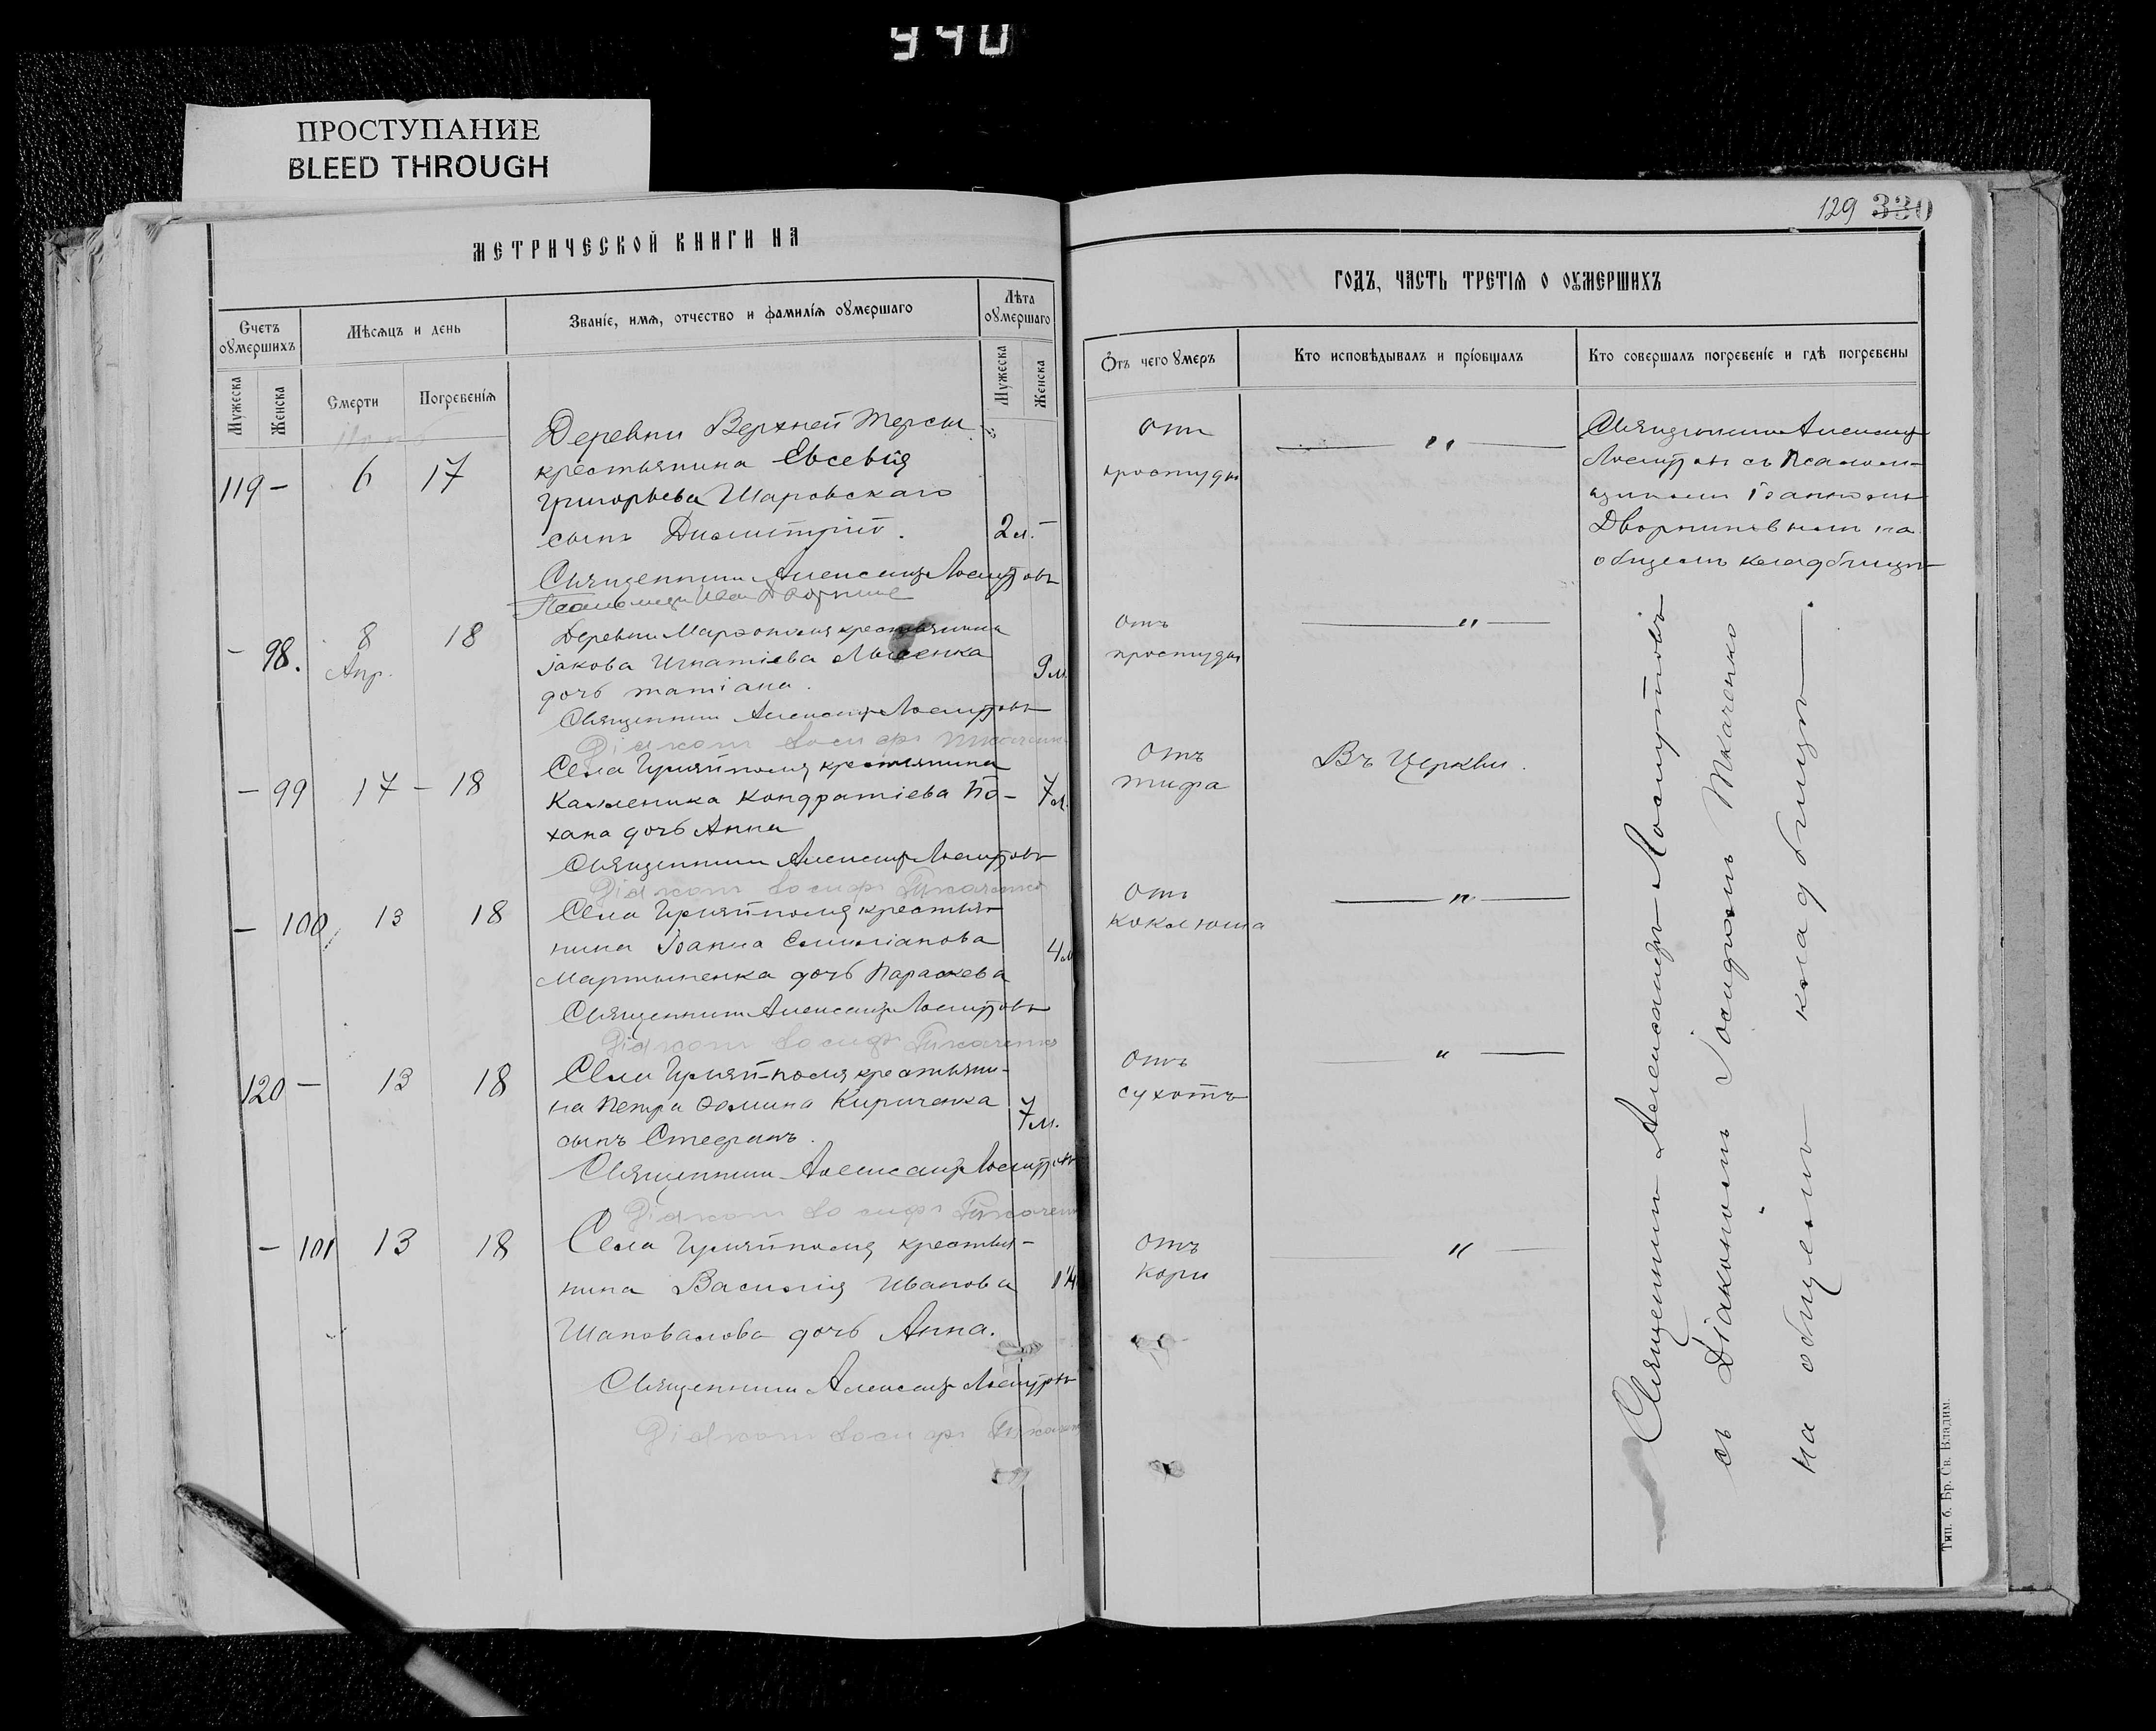 940
ПРОСТУПАНИЕ
BLEED THROUGH
МЕТРИЧЕСКОЙ КНИГИ НА
Счетъ оумершихъ
Мѣсяцъ и день
Званіе, имя, отчество и фамилія оумершаго
Лѣта оумершаго
Мужеска
Женска
Смерти
Погребенія
Мужеска
Женска
119 –
6
17
Деревни Верхней Терсы
крестьянина Евсевія
Григорьева Шаровскаго
сынъ Димитрій.
2 м.
Священникъ Александръ
– 98.
8
Апр.
18
крестьянина
Іакова Игнатіева Лысенка
дочь Татіана.
9 м.
Священникъ Александръ
Діаконъ Іосифъ Ткаченко
– 99
17 –
18
Села Гуляйполя крестьянина
Каленика Кондратіева По-
хана дочь Анна
7 м.
Священникъ Александръ
Діаконъ Іосифъ Ткаченко
– 100
13
18
Села Гуляйполя крестья-
нина Іоанна Емиліанова
Мартыненка дочь Параскева
4 м
Священникъ Александръ
Діаконъ Іосифъ Ткаченко
120 –
13
18
Села Гуляй-поля крестьяни-
на Петра Ѳомина Кириченка
сынъ Стефанъ.
7 м.
Священникъ Александръ
Діаконъ Іосифъ Ткаченко
– 101
13
18
Села Гуляйполя крестья-
нина Василія Иванова
Шаповалова дочь Анна.
Священникъ Александръ
Діаконъ Іосифъ
129 330
ГОДЪ, ЧАСТЬ ТРЕТІЯ О ОУМЕРШИХЪ
Отъ чего умеръ
Кто исповѣдывалъ и пріобщалъ
Кто совершалъ погребеніе и гдѣ погребены
Отъ
простуды
— " —
Священникъ Александръ
съ псалом-
щикомъ Іоанномъ
на
общемъ кладбищѣ
Отъ
простуды
— " —
Отъ
тифа
Въ Церкви.
Отъ
коклюша
— " —
Отъ
сухотъ
— " —
Отъ
кори
— " —
Священникъ Александръ
съ Діакономъ Іосифомъ Ткаченко
на общемъ кладбищѣ
Тип. б. Бр. Св. Владим.